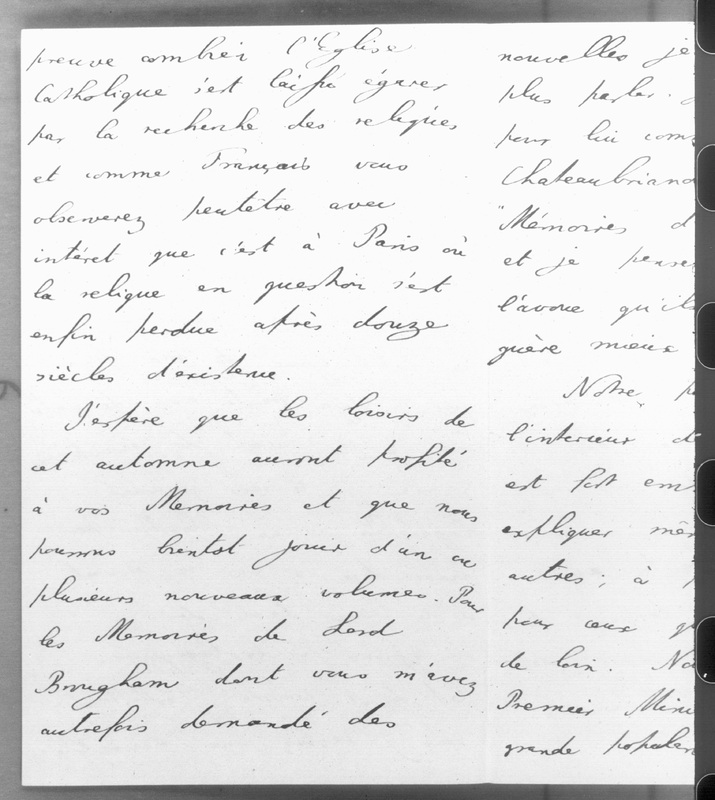 preuve combien l'Eglise
Catholique s'est laissé égarer
par la recherche des reliques
et comme Français vous
observerez peutêtre avec
intéret que c'est à Paris où
la relique en question s'est
enfin perdue après douze
siècles d'existence.
J'espère que les loisirs de
cet automne auront profité
à vos Memoires et que nous
pourrons bientot jouir d'un ou
plusieurs nouveaux volumes. Pour
les Memoires de Lord
Brougham dont vous m'avez
autrefois demandé des
nouvelles je
plus parler.
pour lui com
Chateaubriand
"Mémoires d
et je pense
l'avoue qu'ils
guère mieux
Notre
l'interieur d
est fort em
expliquer mêm
autres ; à
pour ceux q
de loin. No
Premier Mini
grande popular